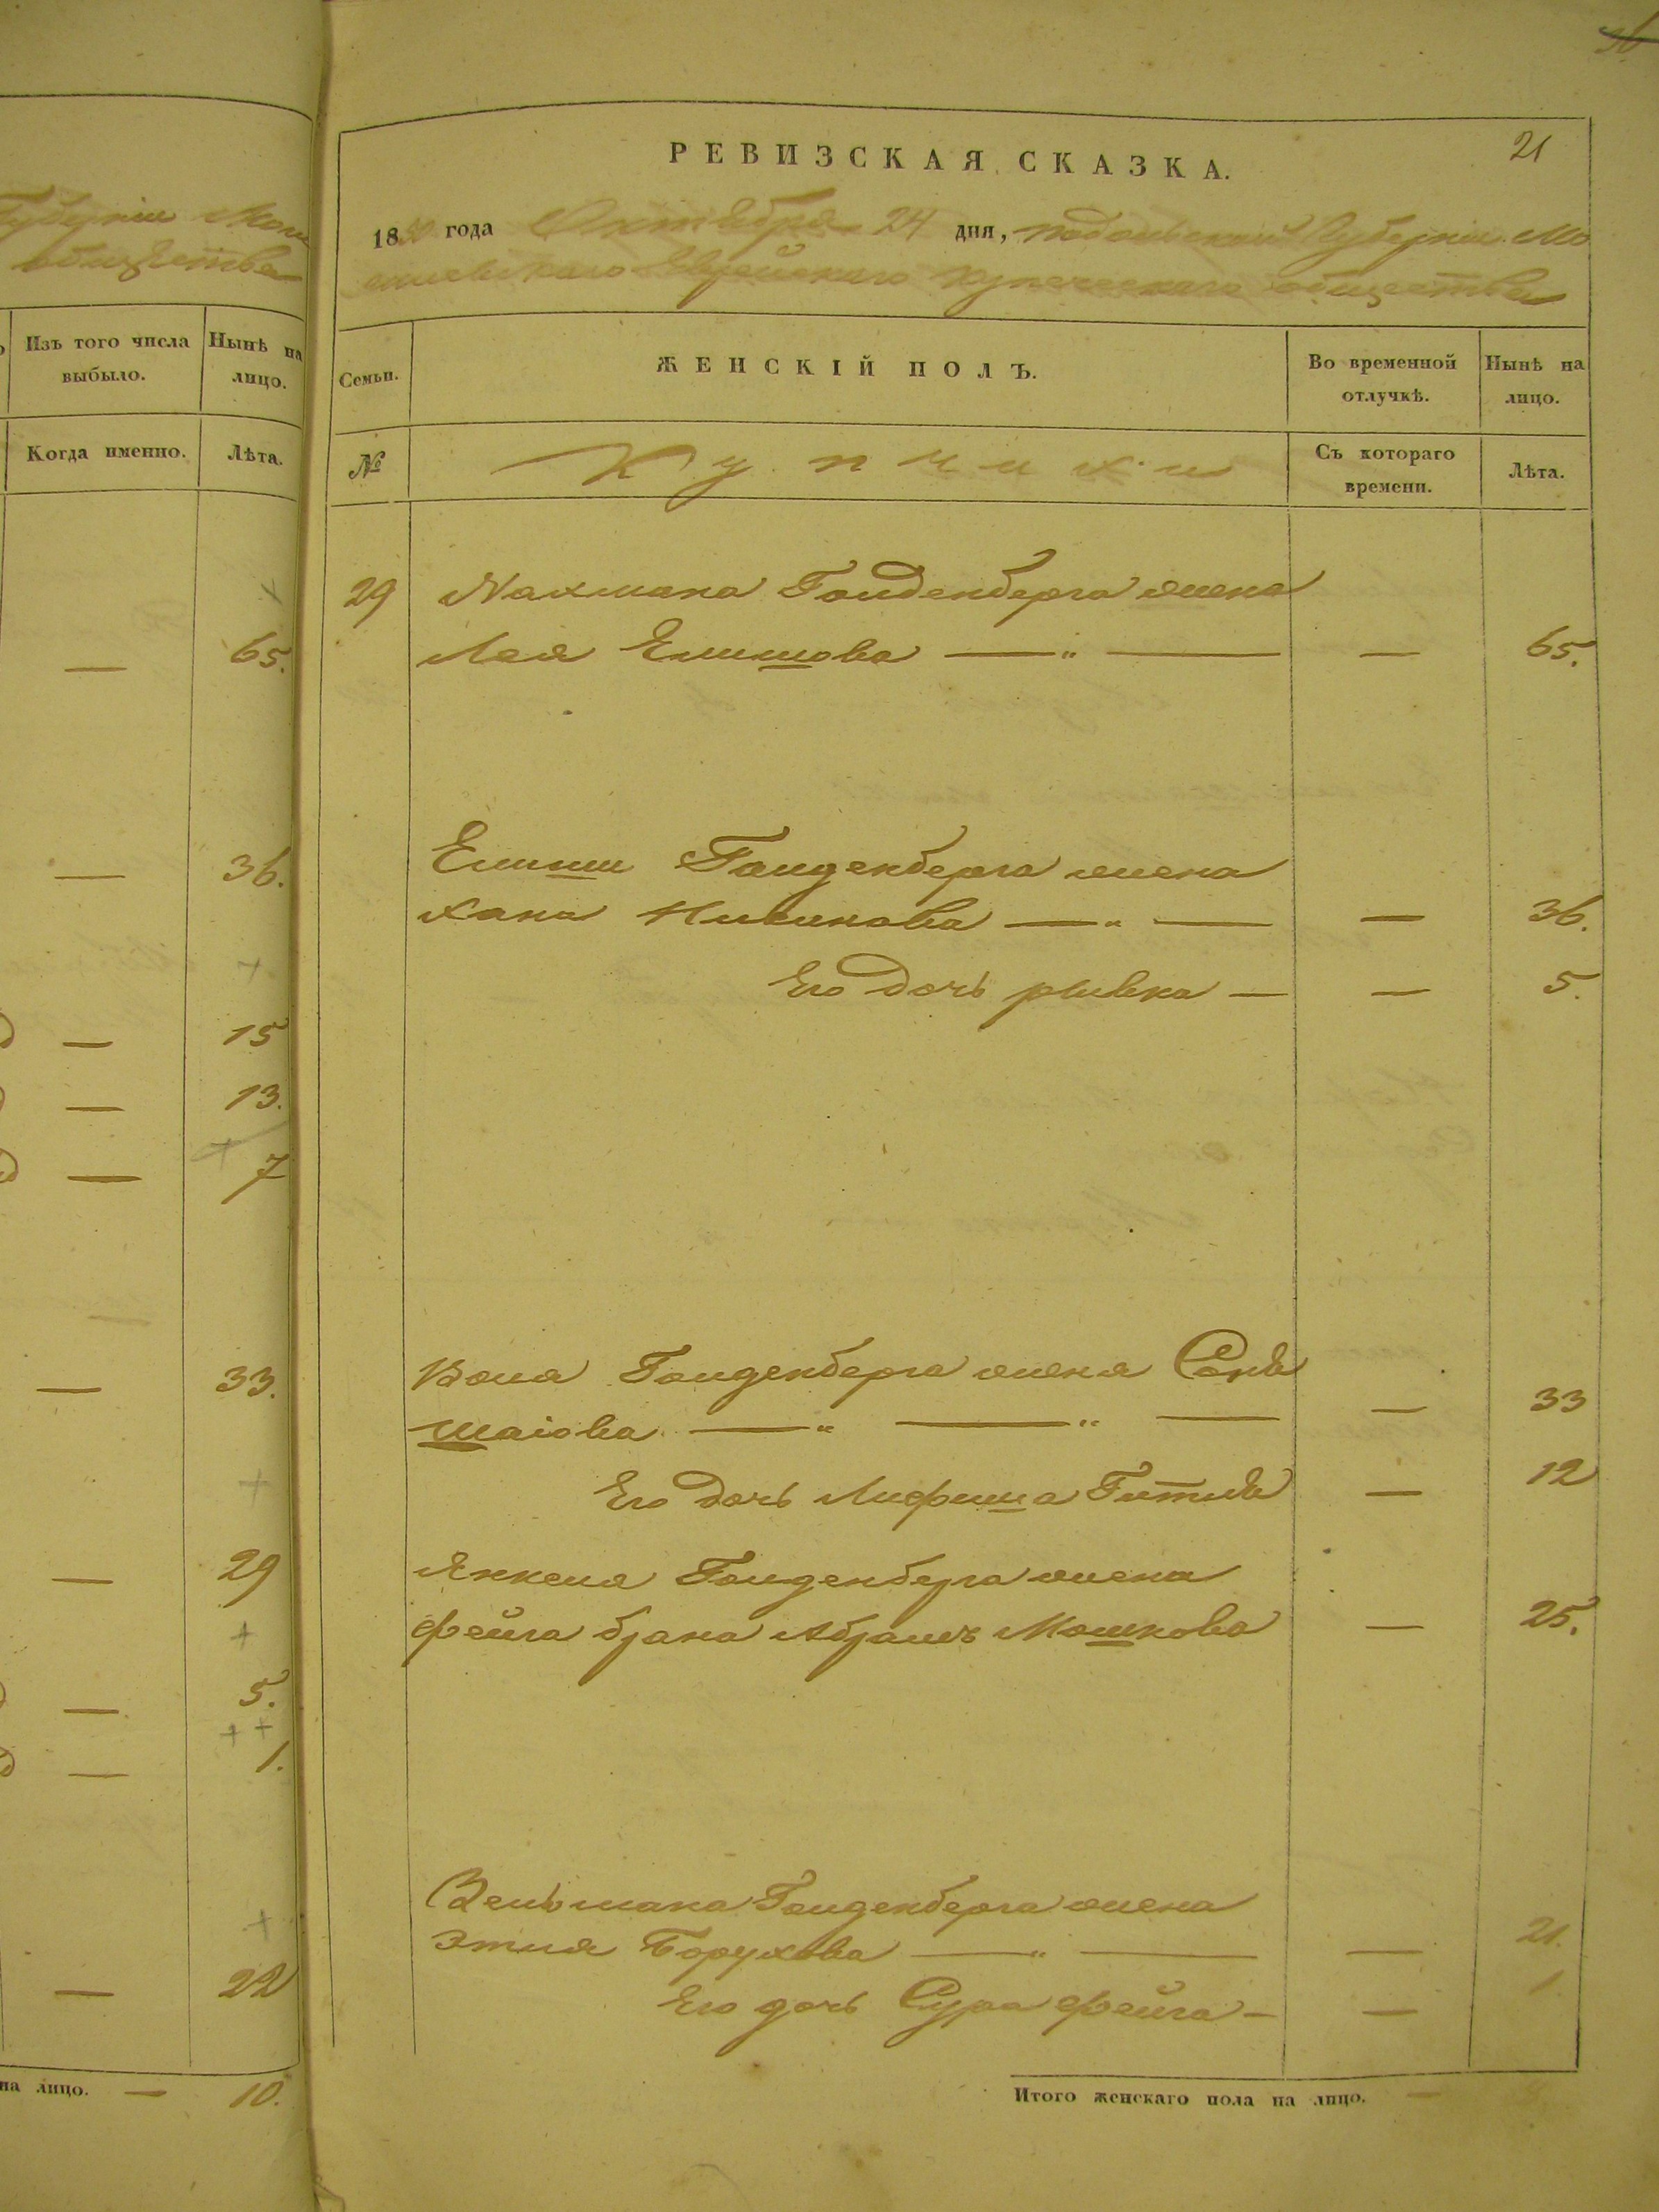 Губернии Моги
общества
Изъ того числа выбыло.
Нынѣ на лицо.
Когда именно.
Лѣта.
— 65.
— 36.
— 15
— 13.
— 7
— 33.
— 29
— 5.
— 1.
— 22
на лицо. — 10.
36
21
РЕВИЗСКАЯ СКАЗКА.
1850 года Октября 24 дня, Подольской Губернии Мо
гилевскаго Еврейскаго Купеческаго общества
Семьи.
ЖЕНСКІЙ ПОЛЪ.
Во временной отлучкѣ.
Нынѣ на лицо.
№
Купчихи
Съ котораго времени.
Лѣта.
29 Нахмана Голденберга жена
Лея Елишова — „ — — 65.
Елиши Голденберга жена
Хана Нисинова — „ — — 36.
Его дочь Рывка — — 5.
Вола Голденберга жена Сося
Шаіова — „ — „ — — 33
Его дочь Лифша Гитля — 12
Янкеля Голденберга жена
Фейга Брана Абрамъ Мошкова — 25.
Зельмана Голденберга жена
Этля Борухова — „ — — 21.
Его дочь Сура Фейга — — 1
Итого женскаго пола на лицо. —